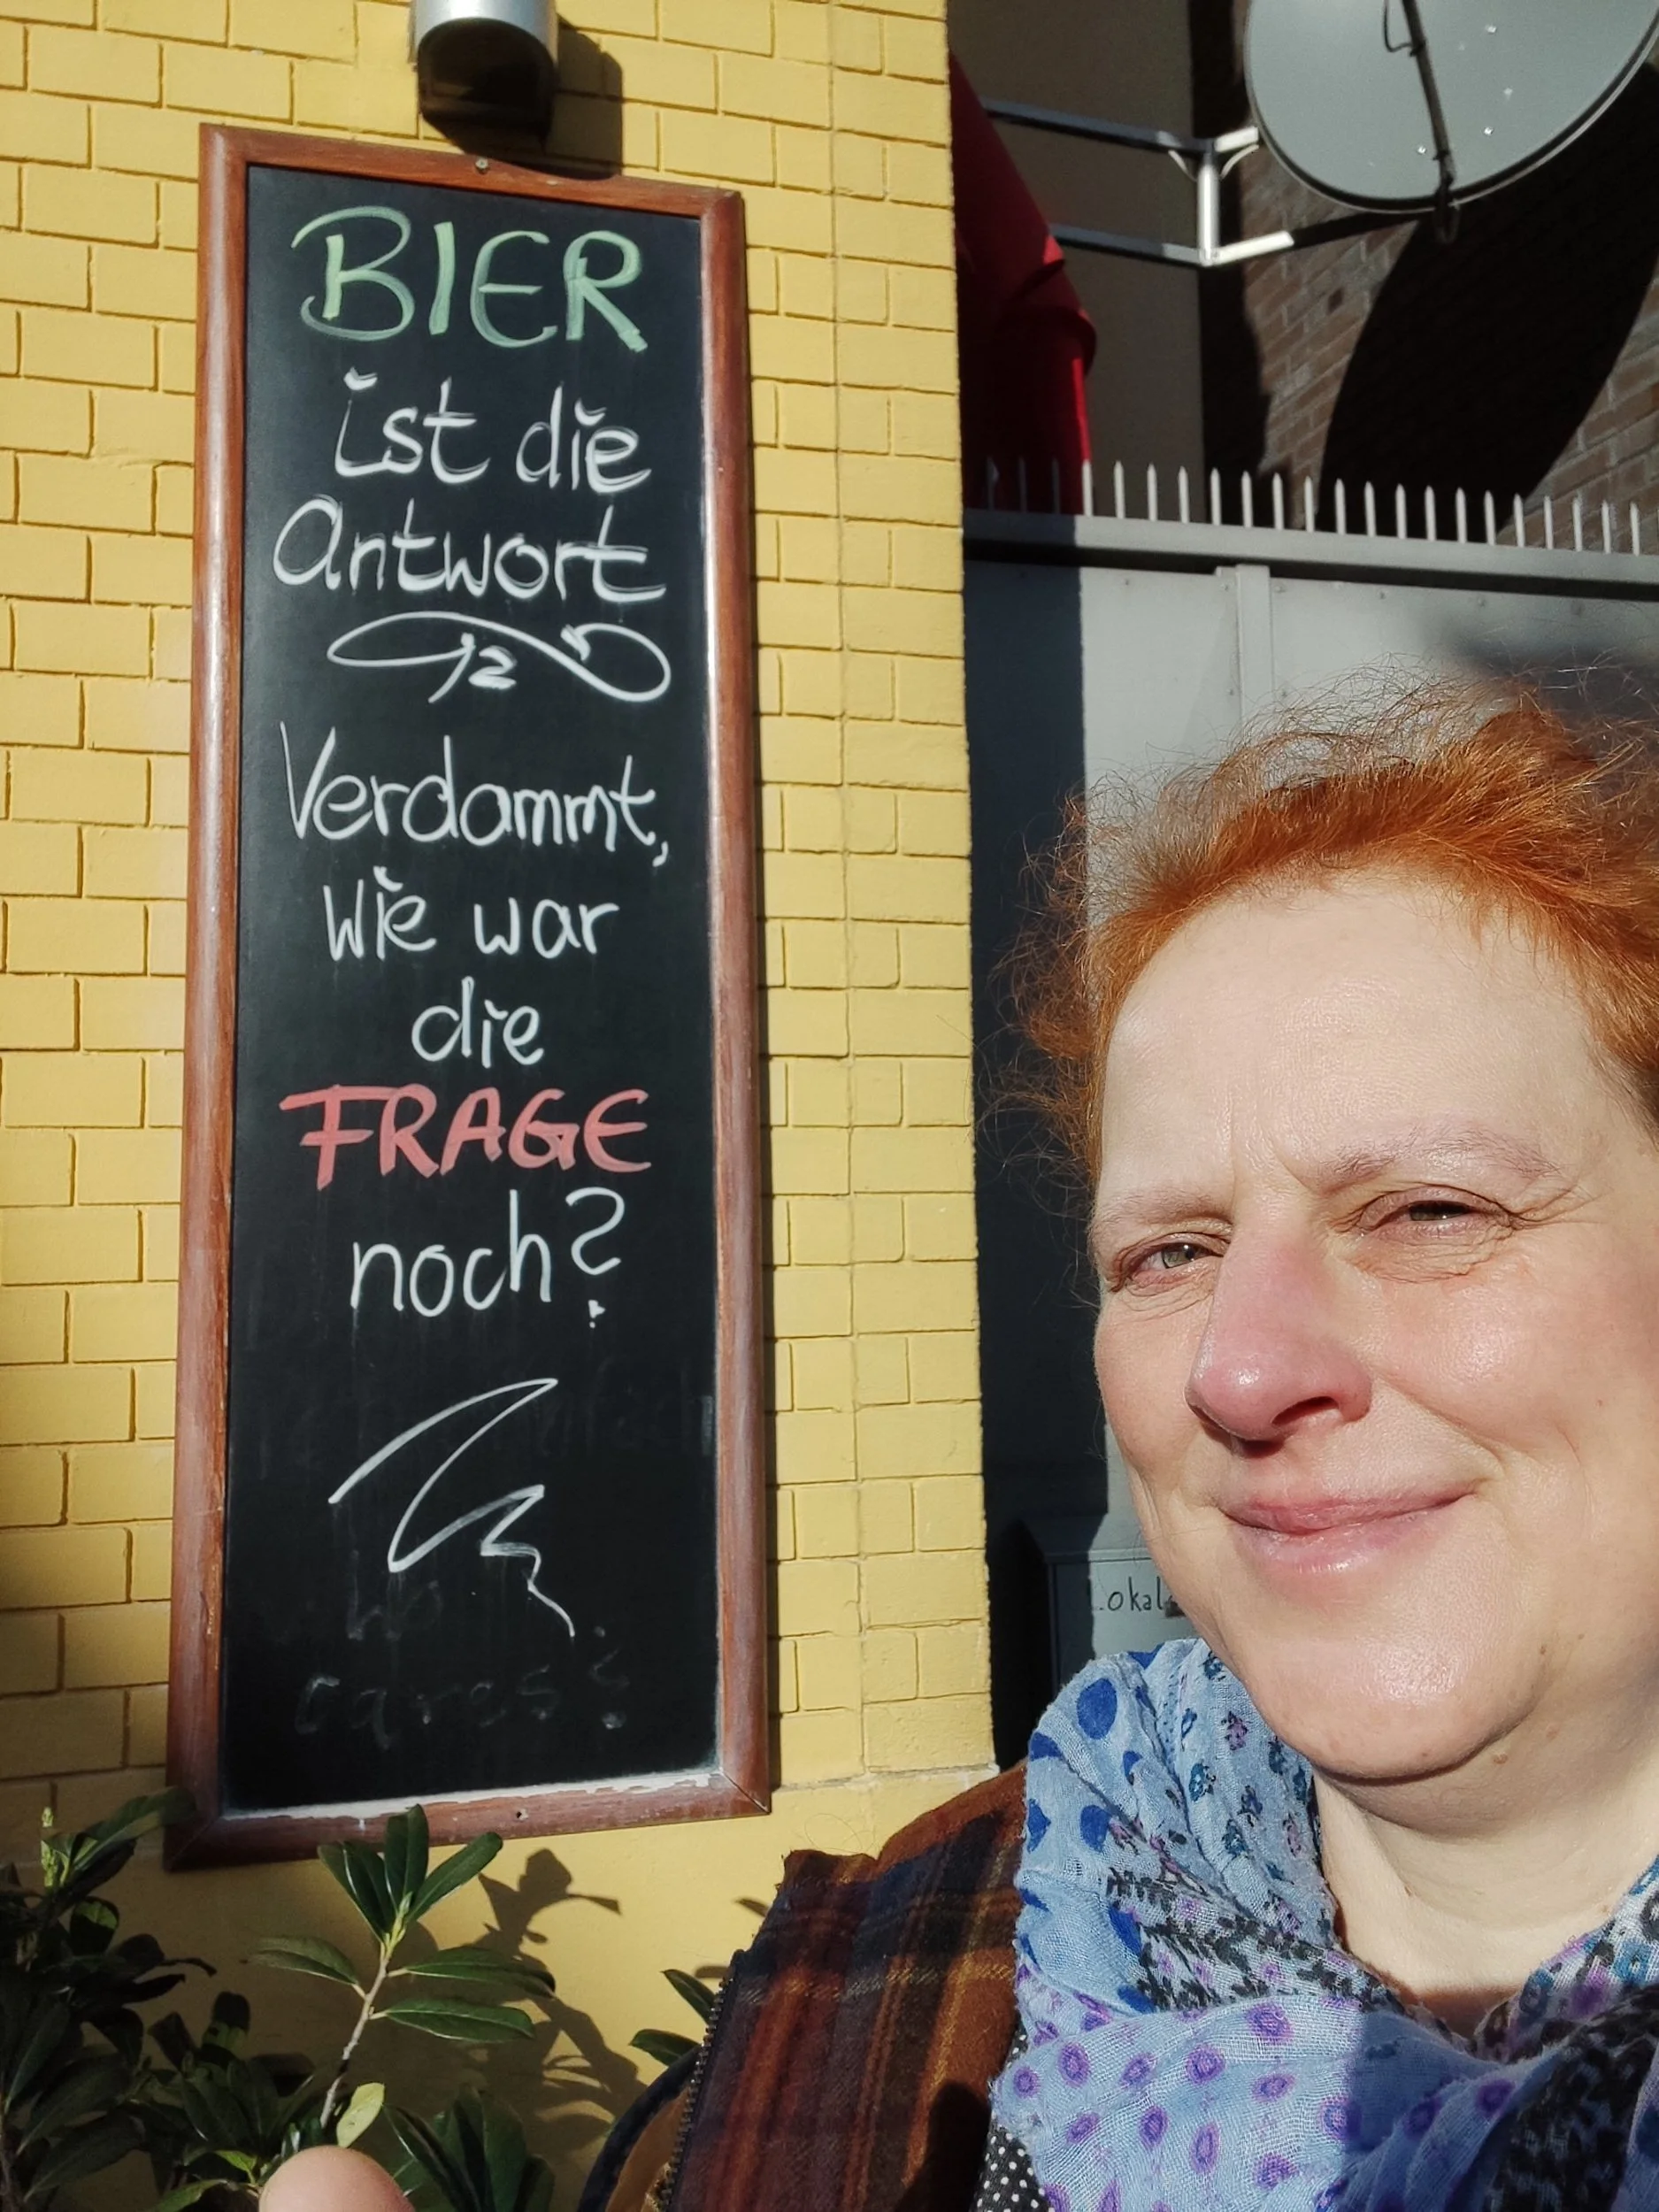 BIER
ist die
Antwort
Verdammt,
Wie war
die
FRAGE
noch?
cares?